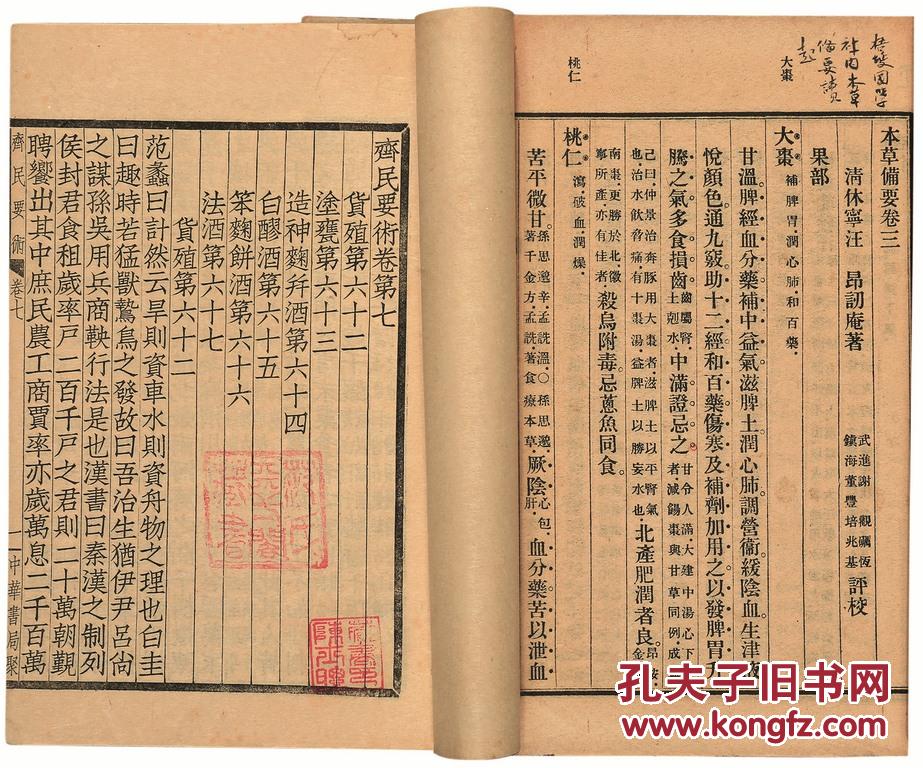 大棗
桃仁
本草備要卷三
清休寧汪 昂訒庵著
武進謝 觀
鎮海董豐培兆基
評校
果部
大棗 補脾胃潤心肺和百藥
甘溫脾經血分藥補中益氣滋脾土潤心肺調營衞緩陰血生津液
悅顏色通九竅助十二經和百藥傷寒及補劑加用之以發脾胃升
騰之氣多食損齒 齒屬腎土剋水 中滿證忌之 甘令人滿大建中湯心下者減餳棗與甘草同例成
己曰仲景治奔豚用大棗者滋脾土以平腎氣也治水飲脅痛有十棗湯益脾土以勝妄水也 北產肥潤者良 昂按金
南棗更勝於北徽寧所產亦有佳者 殺烏附毒忌蔥魚同食
桃仁 瀉破血潤燥
苦平微甘 孫思邈辛孟詵溫〇孫思邈著千金方孟詵著食療本草 厥陰 心包肝 血分藥苦以泄血
齊民要術卷第七
貨殖第六十二
塗甕第六十三
造神麴并酒第六十四
白醪酒第六十五
笨麴餅酒第六十六
法酒第六十七
貨殖第六十二
范蠡曰計然云旱則資車水則資舟物之理也白圭
曰趣時若猛獸鷙鳥之發故曰吾治生猶伊尹呂尙
之謀孫吳用兵商鞅行法是也漢書曰秦漢之制列
侯封君食租歲率戶二百千戶之君則二十萬朝覲
聘饗出其中庶民農工商賈率亦歲萬息二千百萬
齊民要術 卷七
中華書局聚
孔夫子旧书网
www.kongfz.com